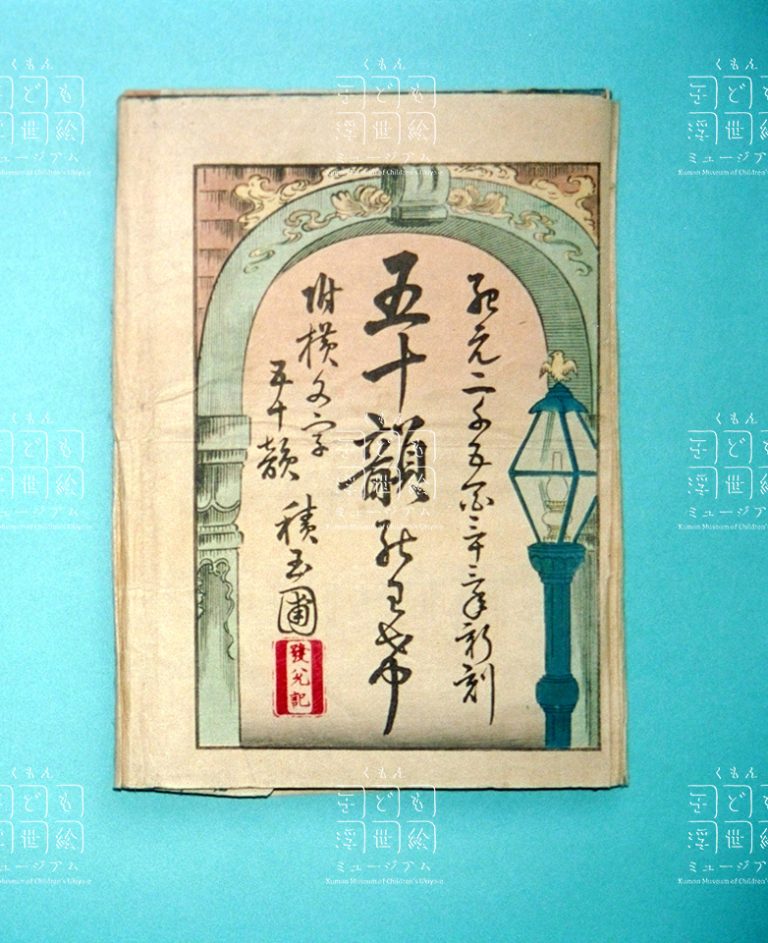 紀元二千五百三十三年新刻
五十韻
附横文字
五十韻
積玉圃
發兌記
くもん
子ども
浮世絵
ミュージアム
Kumon Museum of Children's Ukiyo-e